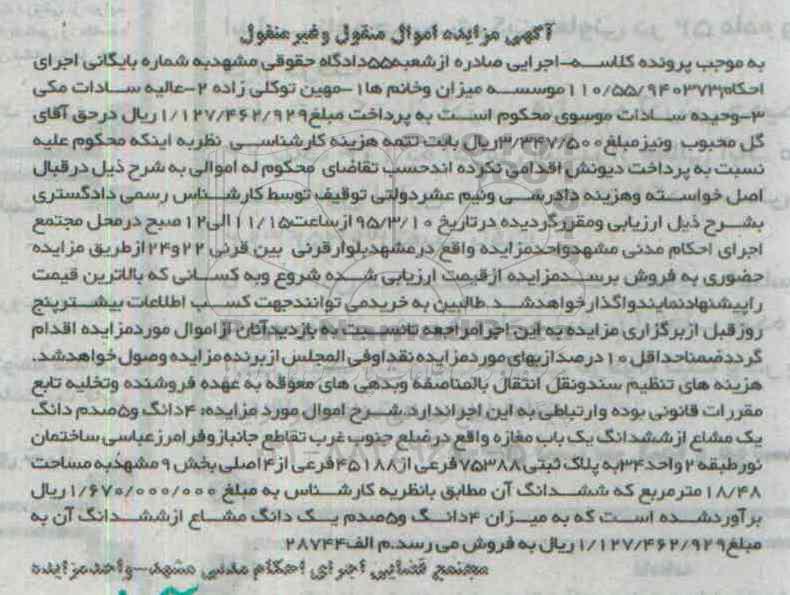 آگهی مزایده اموال منقول وغیر منقول
به موجب پرونده کلاسه-اجرایی صادره ازشعبه۵۵دادگاه حقوقی مشهدبه شماره بایگانی اجرای
احکام۱۱۰/۵۵/۹۴۰۳۷۳موسسه میزان وخانم ها۱-مهین توکلی زاده ۲-عالیه سادات مکی
۳-وحیده سادات موسوی محکوم است به پرداخت مبلغ۱/۱۲۷/۴۶۲/۹۲۹ ریال درحق آقای
گل محبوب ونیزمبلغ۳/۳۴۷/۵۰۰ریال بابت تتمه هزینه کارشناسی نظربه اینکه محکوم علیه
نسبت به پرداخت دیونش اقدامی نکرده اندحسب تقاضای محکوم له اموالی به شرح ذیل درقبال
اصل خواسته وهزینه دادرسی ونیم عشردولتی توقیف توسط کارشناس رسمی دادگستری
بشرح ذیل ارزیابی ومقررگردیده درتاریخ ۹۵/۳/۱۰ ازساعت۱۱/۱۵الی۱۲صبح درمحل مجتمع
اجرای احکام مدنی مشهدواحدمزایده واقع درمشهدبلوارقرنی بین قرنی ۲۲و۲۴ازطریق مزایده
حضوری به فروش برسدمزایده ازقیمت ارزیابی شده شروع وبه کسانی که بالاترین قیمت
راپیشنهادنمایندواگذارخواهدشد طالبین به خریدمی توانندجهت کسب اطلاعات بیشترپنج
روزقبل ازبرگزاری مزایده به این اجرامراجعه تانسبت به بازدیدآنان ازاموال موردمزایده اقدام
گرددضمناحداقل ۱۰درصدازبهای موردمزایده نقداوفی المجلس ازبرنده مزایده وصول خواهدشد.
هزینه های تنظیم سندونقل انتقال بالمناصفه وبدهی های معوقه به عهده فروشنده وتخلیه تابع
مقررات قانونی بوده وارتباطی به این اجراندارد شرح اموال مورد مزایده: ۴دانگ و۵صدم دانگ
یک مشاع ازششدانگ یک باب مغازه واقع درضلع جنوب غرب تقاطع جانبازوفرامرزعباسی ساختمان
نورطبقه ۲واحد۳۴به پلاک ثبتی ۷۵۳۸۸فرعی از۴۵۱۸۸فرعی از۴اصلی بخش ۹مشهدبه مساحت
۱۸/۴۸مترمربع که ششدانگ آن مطابق بانظریه کارشناس به مبلغ ۱/۶۷۰/۰۰۰/۰۰۰ریال
برآوردشده است که به میزان ۴دانگ و۵صدم یک دانگ مشاع ازششدانگ آن به
مبلغ۱/۱۲۷/۴۶۲/۹۲۹ریال به فروش می رسد.م الف۲۸۷۴۴
مجتمع قضایی اجرای احکام مدنی مشهد-واحدمزایده